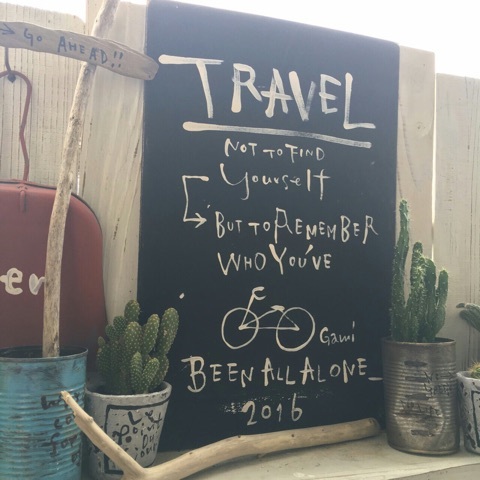 GO AHEAD!!
TRAVEL
NOT TO FIND
Yourself
BUT TO REMEMBER
WHO YOU'VE
Gami
BEEN ALL ALONE_
2016
er